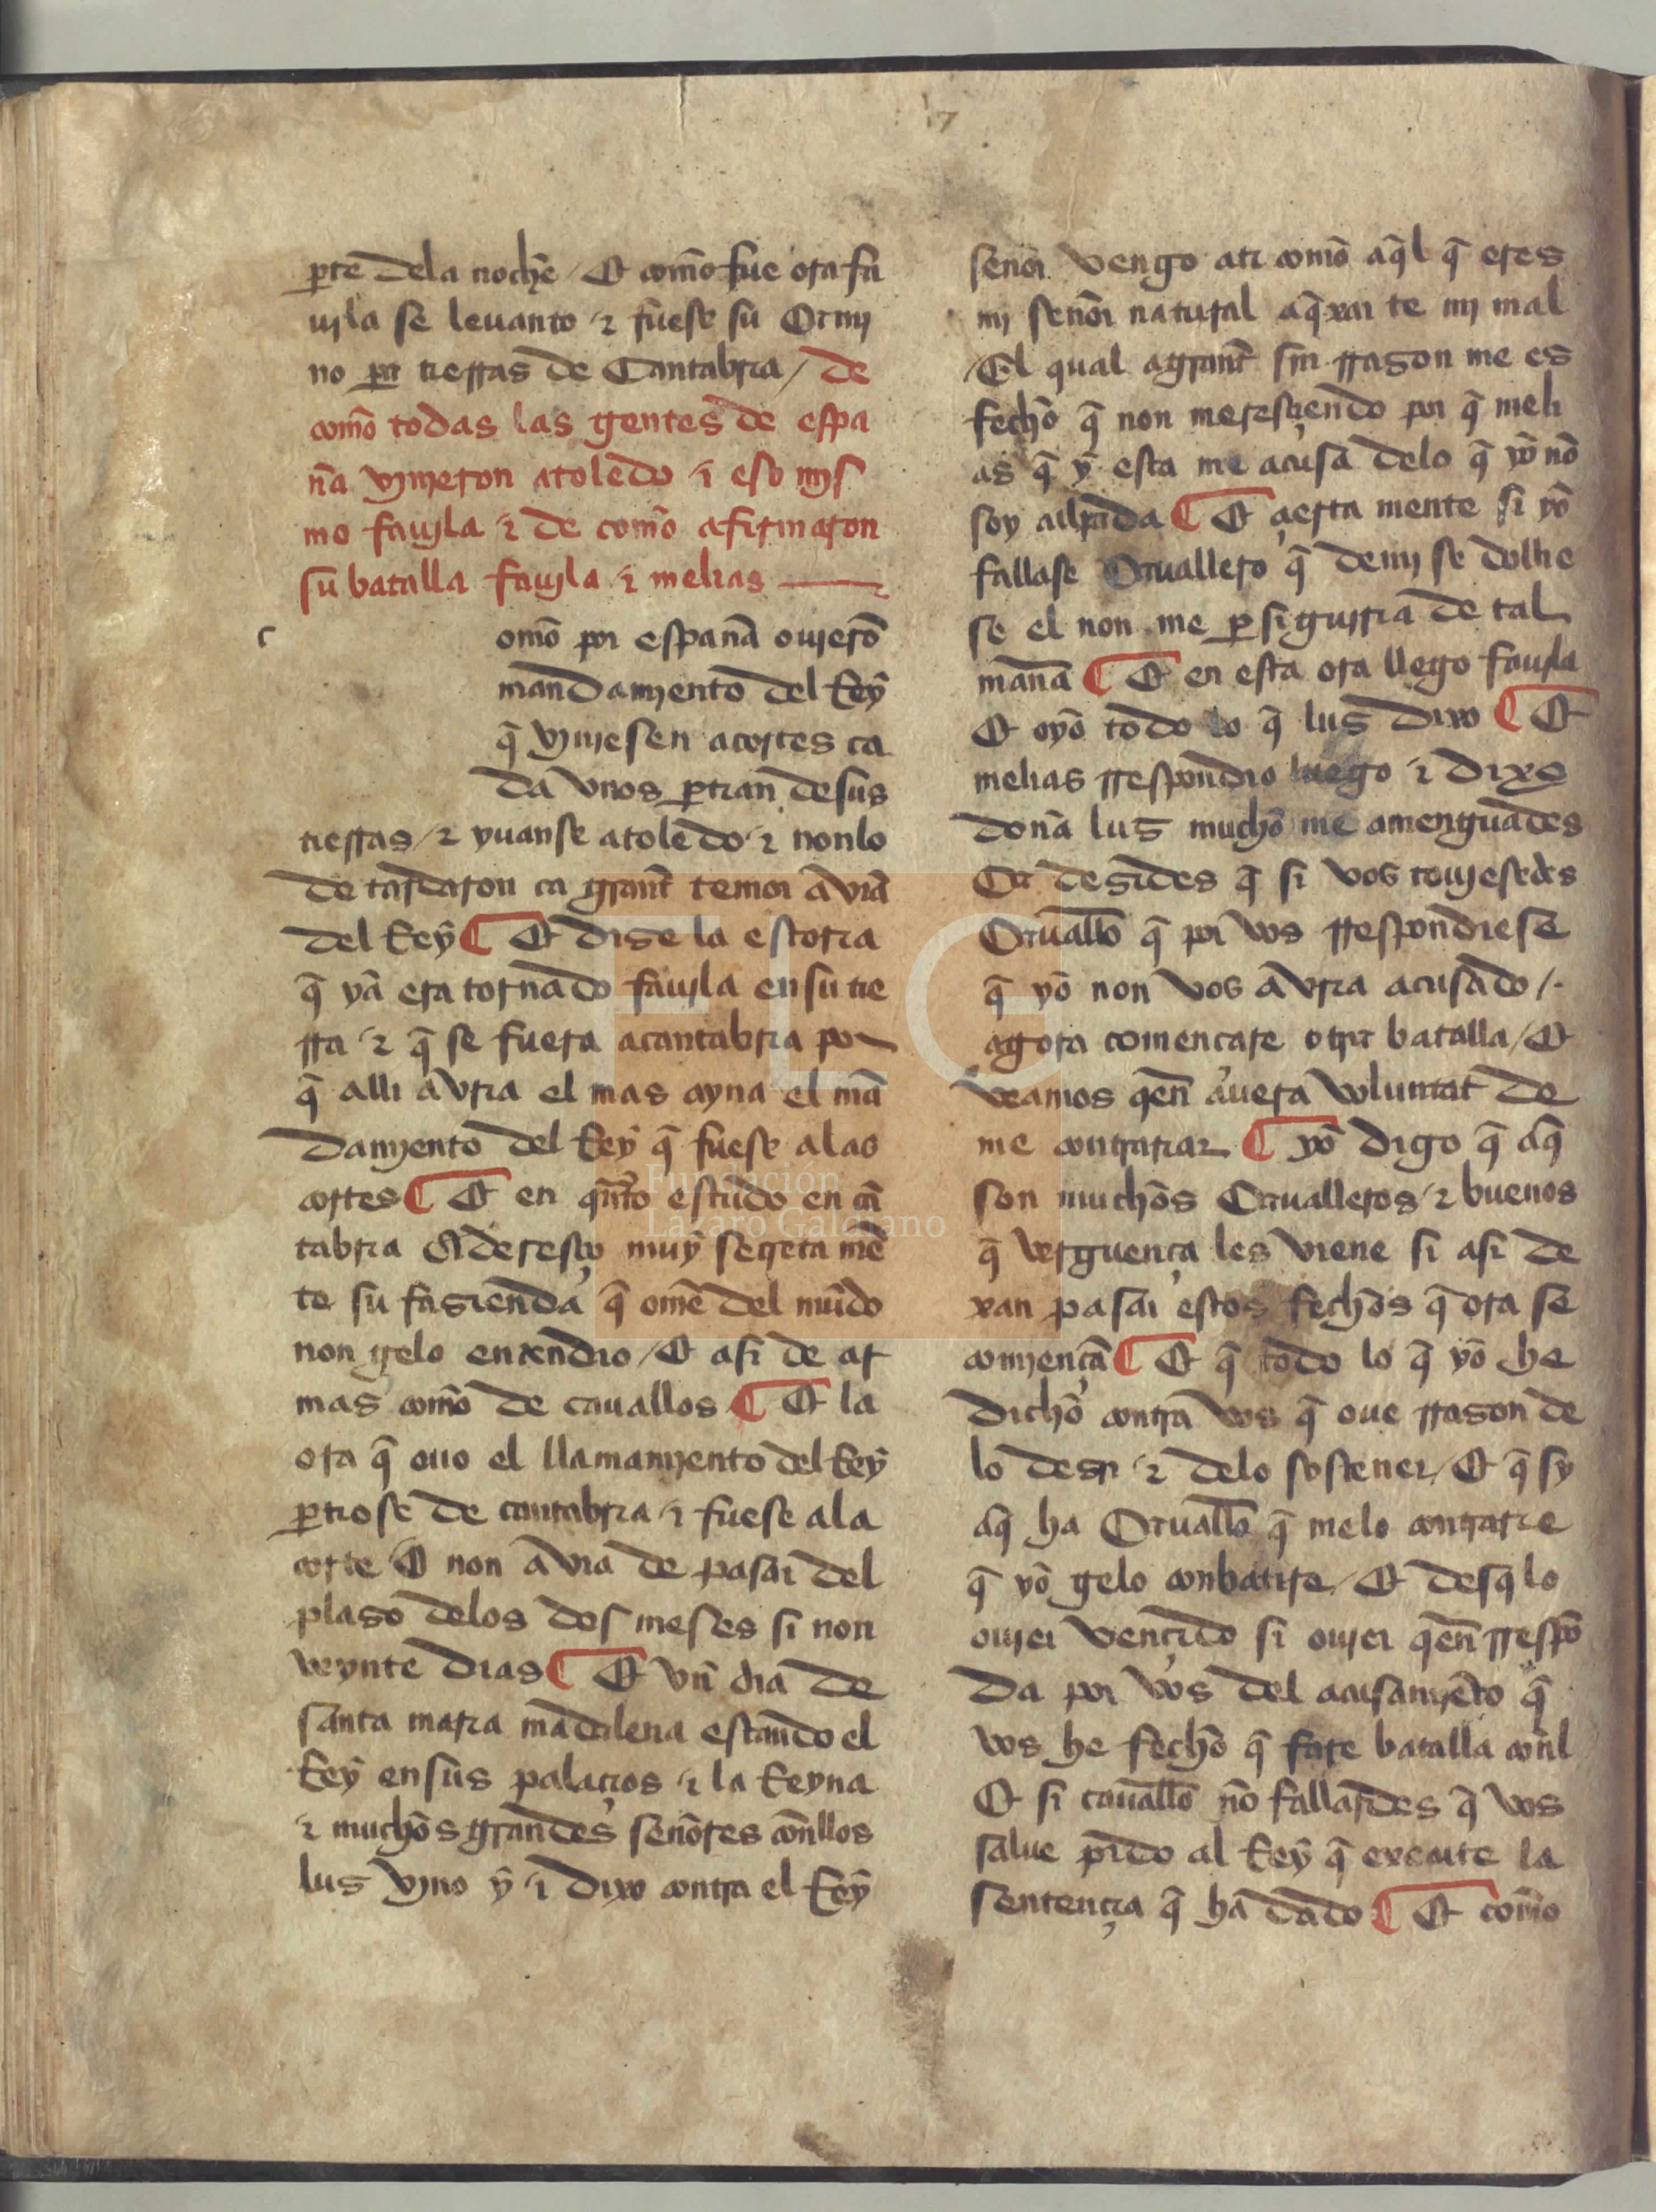 ꝑte dela noche / Et com̃o fue ora fa
uila se leuanto ⁊ fuese su Cami
no por tierras de Cantabria / de
com̃o todas las gentes de espa
ña vinieron atoledo ⁊ eso mis
mo fauila ⁊ de com̃o afirmaron
su batalla fauila ⁊ melias
c
omõ por españa ouierõ
mandamiento del Rey
q̃ viniesen acortes ca
da vnos ꝑtian de sus
tierras / ⁊ yuanse atoledo ⁊ nonlo
de tardaron ca grant temor avia
del Rey ¶ Et dise la estoria
q̃ ya era tornado fauila en su tie
rra ⁊ q̃ se fuera acantabria por
q̃ alli avria el mas ayna el mã
damiento del Rey q̃ fuese alas
cortes ¶ Et en qñto estudo en cã
tabria Aderesço muy secreta mẽ
te su fasienda q̃ ome del mũdo
non gelo entendio / Et asi de ar
mas com̃o de cauallos ¶ Et la
ora q̃ ouo el llamamiento del Rey
ꝑtiose de cantabria ⁊ fuese ala
corte Et non avia de pasar del
plaso delos dos meses si non
veynte dias ¶ Et vñ dia de
santa maria madalena estando el
Rey en sus palaçios ⁊ la Reyna
⁊ muchos grandes señores cõnllos
lus vino y ⁊ dixo contra el Rey
señor vengo ati com̃o aq̃l q̃ eres
mi señor natural aq̃xar te mi mal
El qual agrant sin rrason me es
fecho q̃ non meresçiendo por q̃ meli
as q̃ y esta me acusa delo q̃ yo nõ
soy culpada ¶ Et açerta mente si yo
fallase Cauallero q̃ demi se dolie
se el non me ꝑsiguiria de tal
mañã ¶ Et en esta ora llego fauila
Et oyo todo lo q̃ lus dixo ¶ Et
melias rrespondio luego ⁊ dixo
doña lus mucho me amenguades
Ca desides q̃ si vos touiesedes
Cauallõ q̃ por vos rrespondiese
q̃ yo non vos avria acusado /.
agora comencare otra batalla / Et
veamos qen̄ auera voluntat de
me contrariar ¶ yo digo q̃ aq̃
son muchos Caualleros ⁊ buenos
q̃ verguença les viene si asi de
xan pasar estos fechos q̃ ora se
comiençã ¶ Et q̃ todo lo q̃ yo he
dicho contra vos q̃ oue rrason de
lo desir ⁊ delo sostener / Et q̃ sy
aq̃ ha Cauallõ q̃ melo contrarie
q̃ yo gelo conbatire / Et desq̃ lo
ouier vençido si ouier qen̄ rrespõ
da por vos del acusamiẽto q̃
vos he fecho q̃ fare batalla cõnl
Et si cauallõ nõ fallardes q̃ vos
salue pido al Rey q̃ execute la
sentençia q̃ ha dado ¶ Et com̃o
FLG
Fundación
Lázaro Galdiano